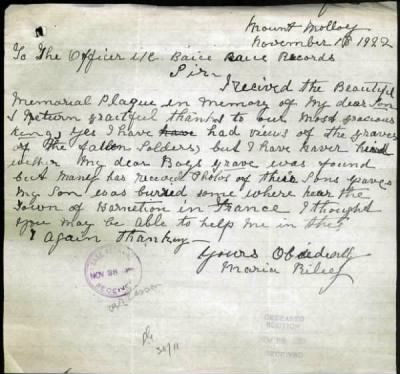 Mount Molloy
November 18 1922
To The Officer i/c Baice Baice Records
Sir
I recived the Beautiful
Memorial Plaque in memory of My dear Son
I return gratful thanks to our most gracious
King, yes I have have had views of the graves
of the fallen Solders, but I have never heard
wether My dear Boys grave was found
but many has recived Photos of their Sons graves
my Son was buried some where near the
Town of Barnetion in France I thought
you may be able to help me in this
I again thanking
Yours Obediently
Maria Riley
NOV 28
RECEIVED
30/11
DECEASED
SECTION
RECEIVED